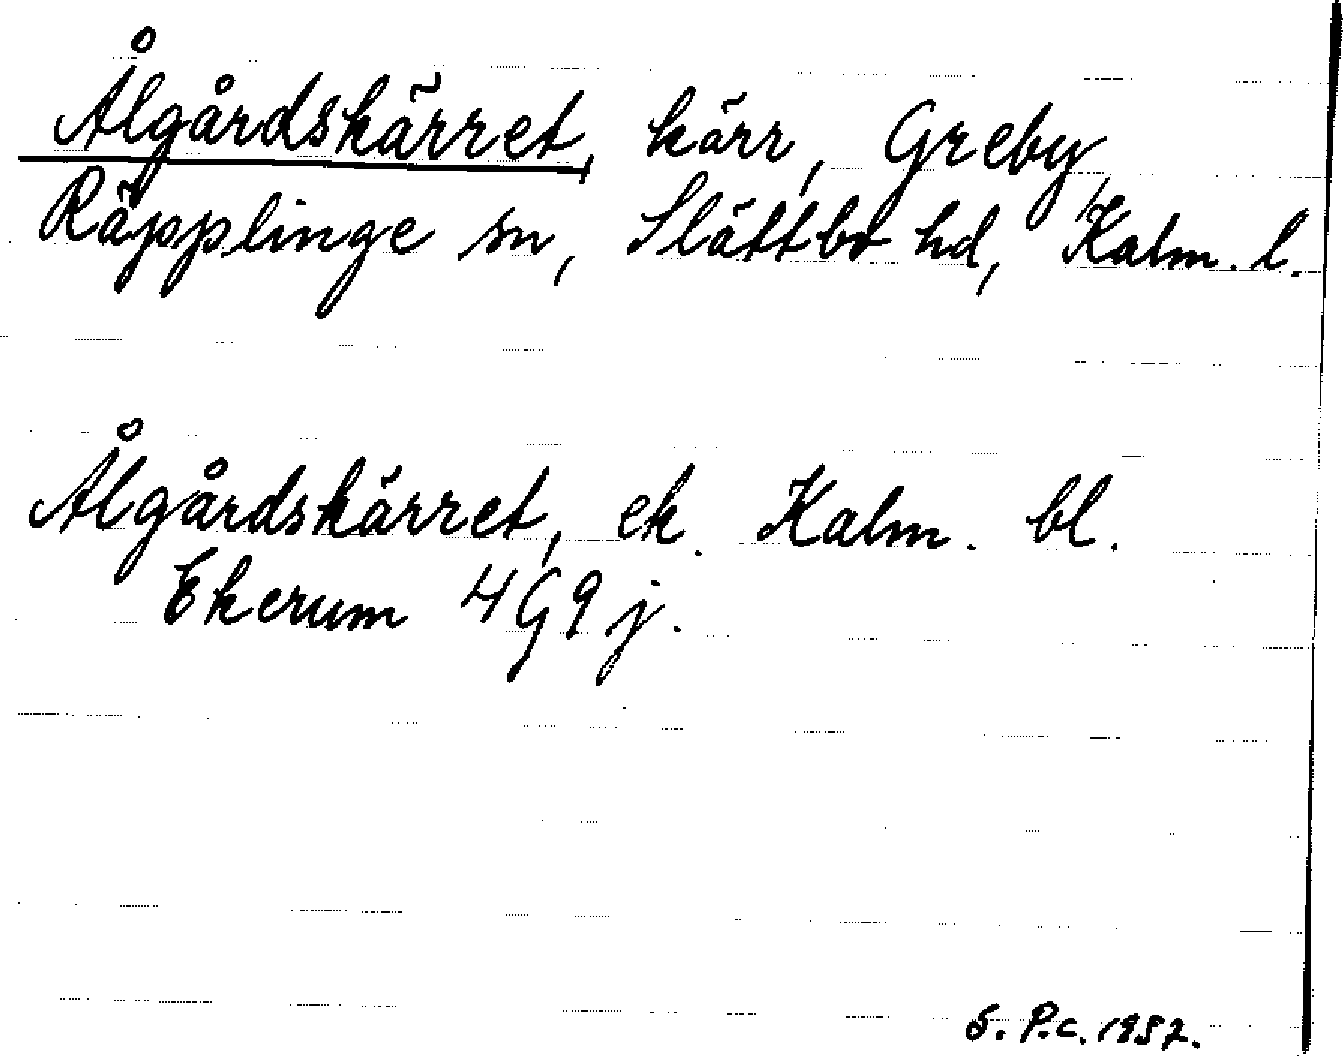 Ålgårdskärret, kärr, Greby,
Räpplinge sn, Slättbo hd, Kalm. l.
Ålgårdskärret, ek. Kalm. bl.
Ekerum 4G9j.
S. P.c. 1957.